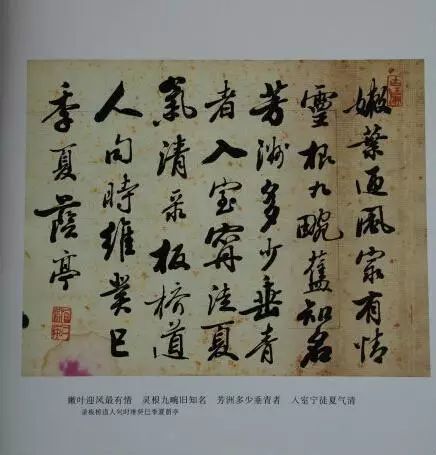 嫩葉迎風最有情
靈根九畹舊知名
芳洲多少垂青
者入室甯徒夏
氣清录板橋道
人句時維癸巳
季夏蔭亭
嫩叶迎风最有情 灵根九畹旧知名 芳洲多少垂青者 入室宁徒夏气清
录板桥道人句时维癸巳季夏荫亭